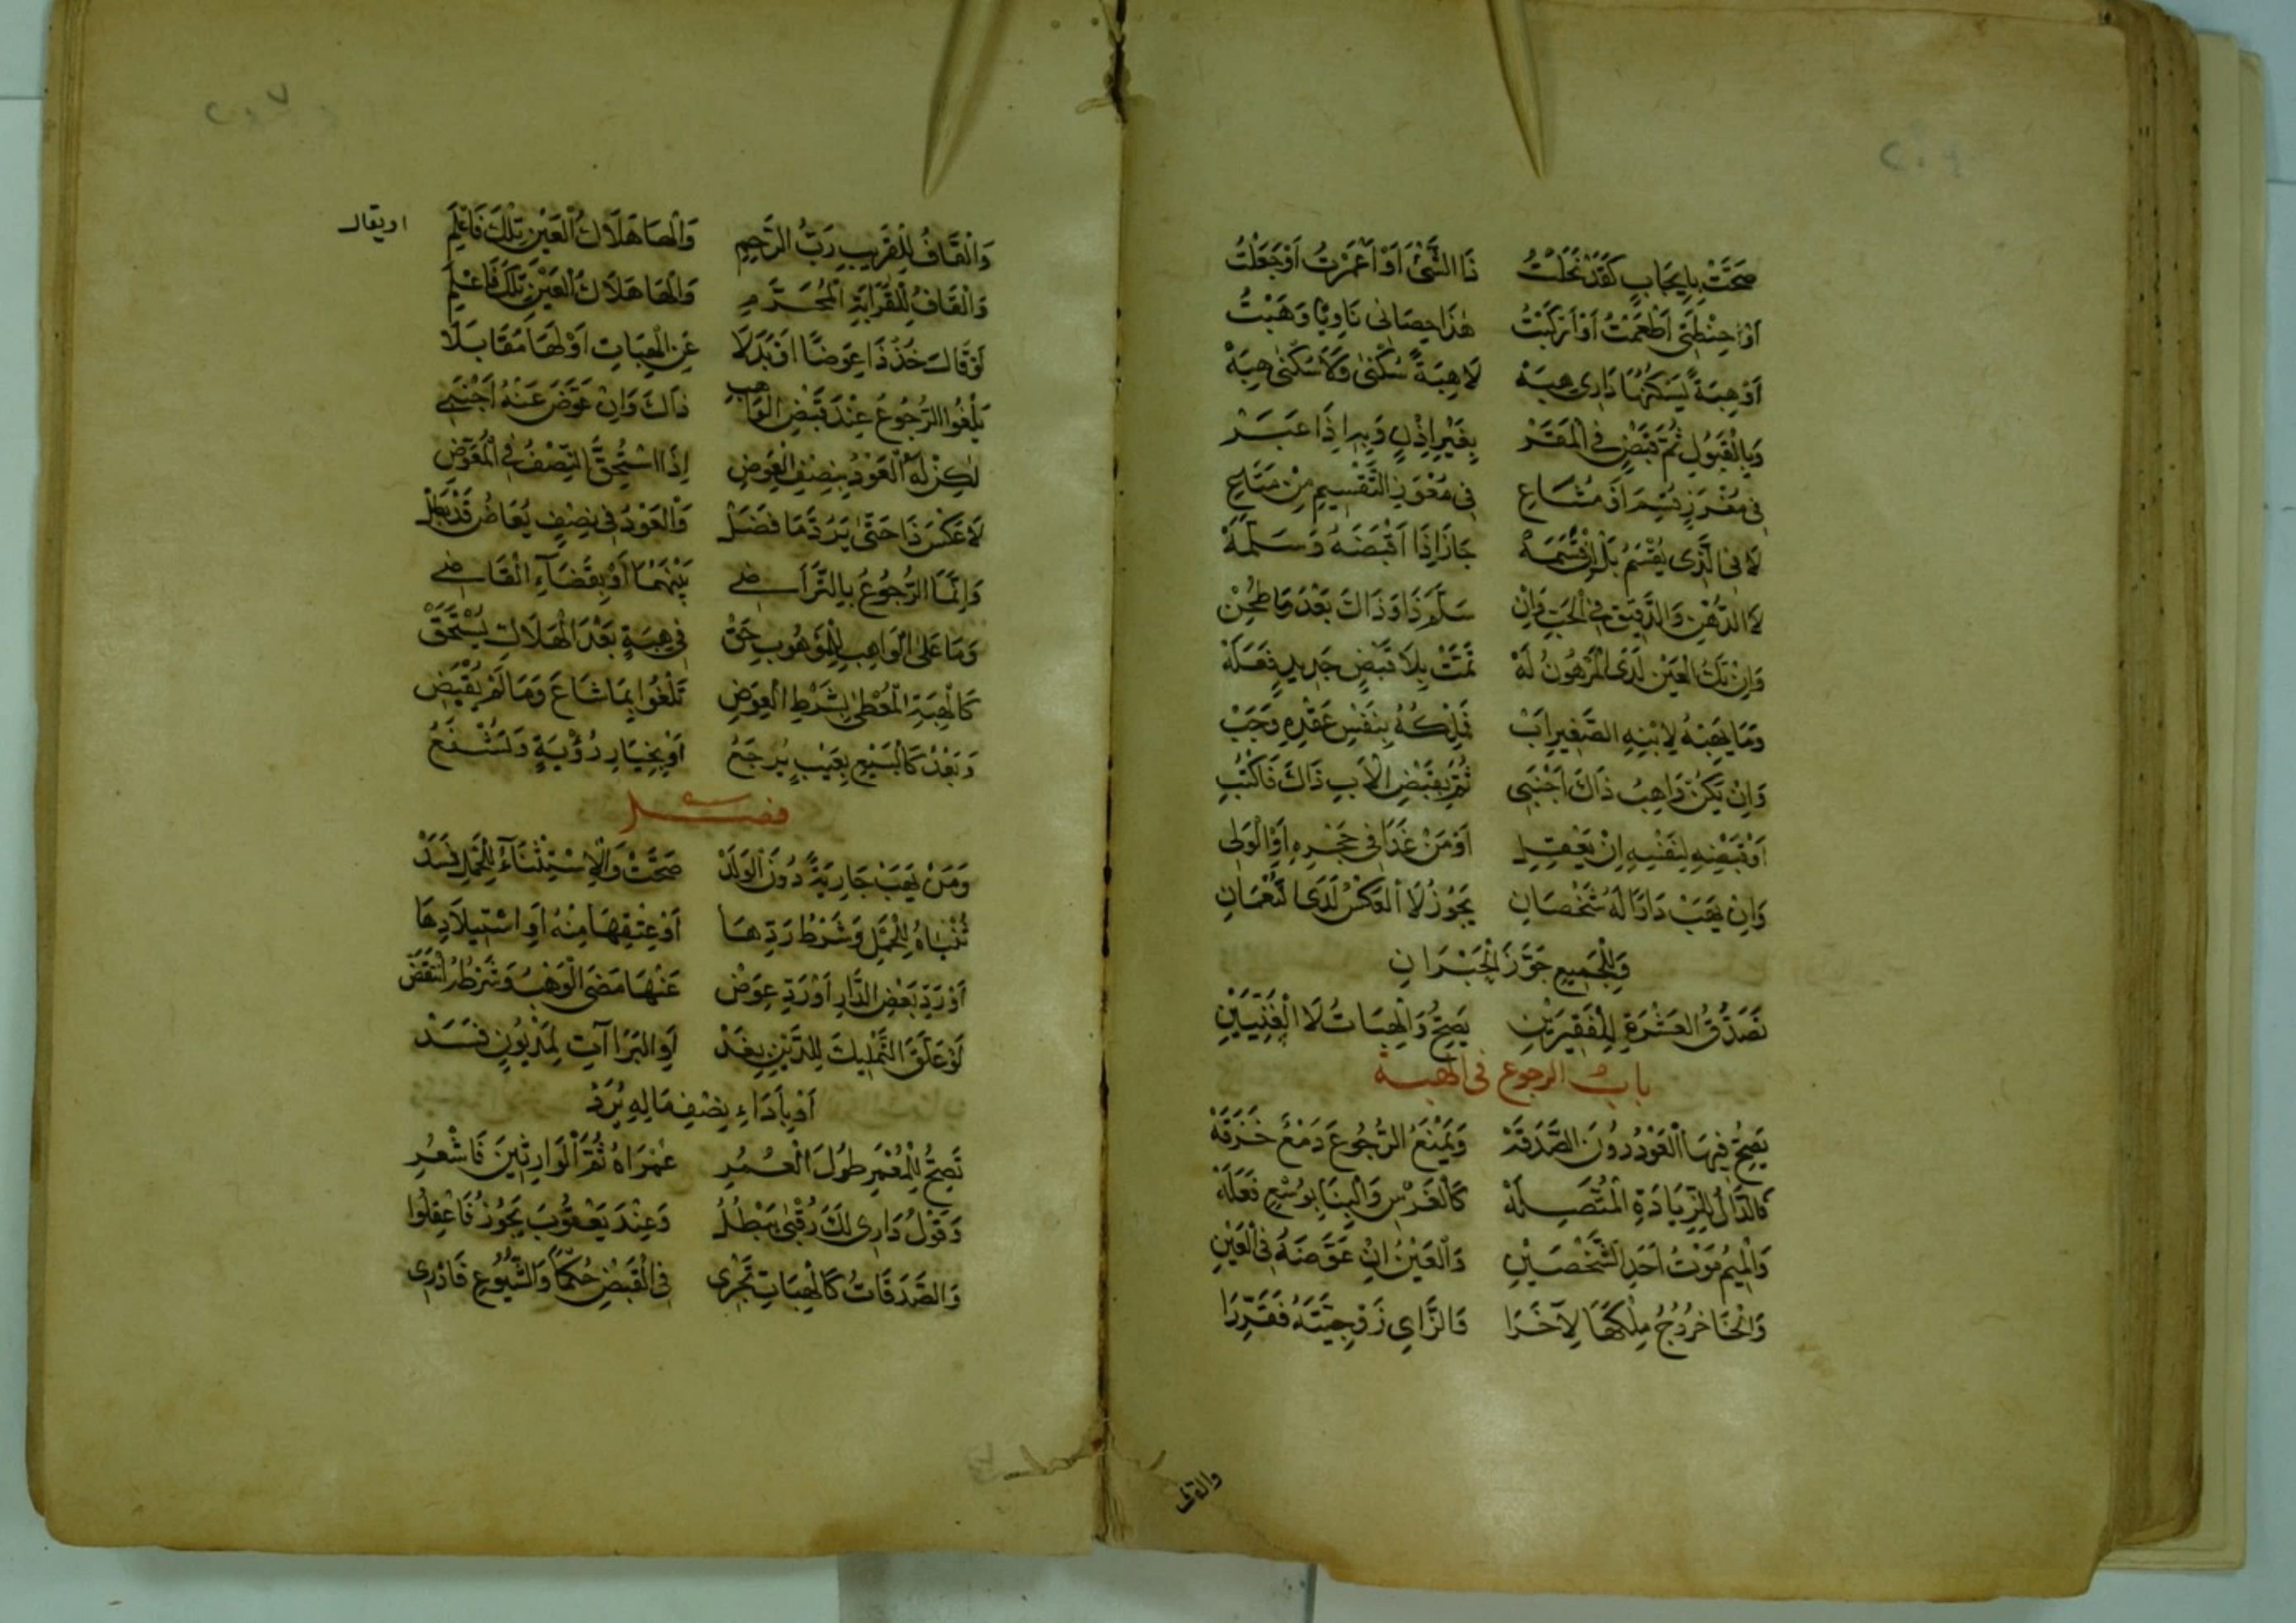 صَحَّتْ بِإِيجَابٍ كَقَدْ نَحَلْتُ ذَا الشَّئَ اَوْ اَعْمَرْتُ اَوْ جَعَلْتُ
اَوْ حِنْطَتِى اَطْعَمْتُ اَوْ اَرْكَبْتُ هٰذَا حِصَانِى نَاوِيًا وَهَبْتُ
اَوْ هِبَةً يَسْكُنُهَا دَارِى هِبَهْ لَا هِبَةً سُكْنٰى وَلَا سُكْنٰى هِبَهْ
وَبِالْقَبُولِ ثُمَّ قَبْضٍ فِى الْمَقَرْ بِغَيْرِ اِذْنٍ وَبِهِ اِذَا عَبَرْ
فِى مُفْرَزٍ قُسِّمَ اَوْ مُشَاعِ فِى مُعْوَزِ التَّقْسِيمِ مِنْ مَتَاعِ
لَا فِى الَّذِى يُقْسَمُ بَلْ اِنْ قَسَمَهْ جَازَ اِذَا اَقْبَضَهُ وَسَلَّمَهْ
لَا الدُّهْنِ وَالدَّقِيقِ فِى الْحَبِّ وَاِنْ سَلَّمَ ذَا وَذَاكَ بَعْدَ مَا طُحِنْ
وَاِنْ تَكُ الْعَيْنُ لَدَى الْمَرْهُونِ لَهْ تَمَّتْ بِلَا قَبْضٍ جَدِيدٍ فَعَلَهْ
وَمَا يَهَبْهُ لِابْنِهِ الصَّغِيرِ اَبْ فَمِلْكُهُ بِنَفْسِ عَقْدِهِ وَجَبْ
وَاِنْ يَكُنْ وَاهِبُ ذَاكَ اَجْنَبِى تُمَّ بِقَبْضِ الْاَبِ ذَاكَ فَاكْتُبِ
اَوْ قَبْضِهِ لِنَفْسِهِ اِنْ يَعْقِلِ اَوْ مَنْ غَدَا فِى حَجْرِهِ اَوِ الْوَلِى
وَاِنْ يَهَبْ دَارًا لَهُ شَخْصَانِ يَجُوزُ لَا الْعَكْسُ لَدَى النُّعْمَانِ
وَلِلْجَمِيعِ جَوَّزَ الْحَبْرَانِ
تَصَدُّقُ الْعَشْرَةِ لِلْفَقِيرَيْنِ يَصِحُّ وَالْهِبَاتُ لَا الْغَنِيَّيْنِ
بابُ الرجوع فى الهبة
يَصِحُّ فِيهَا الْعَوْدُ دُونَ الصَّدَقَهْ وَيَمْنَعُ الرُّجُوعَ دَمْعُ خَزَقَهْ
فَالدَّالُ لِلزِّيَادَةِ الْمُتَّصِلَهْ كَالْغَرْسِ وَالْبِنَا بِوُسْعٍ فَعَلَهْ
وَالْمِيمُ مَوْتُ اَحَدِ الشَّخْصَيْنِ وَالْعَيْنُ اِنْ عَوَّضَهُ فِى الْعَيْنِ
وَالْخَا خُرُوجُ مِلْكِهَا لِآخَرَا وَالزَّاىِ زَوْجِيَّتُهُ فَقَرِّرَا
وَالْقَافُ لِلْقَرِيبِ رَبُّ الرَّحِمِ وَالْهَا هَلَاكُ الْعَيْنِ تِلْكَ فَاعْلَمِ
اويقال
وَالْقَافُ لِلْقَرَابَةِ الْمُحَرَّمِ وَالْهَا هَلَاكُ الْعَيْنِ تِلْكَ فَاعْلَمِ
لَوْ قَالَ خُذْ ذَا عِوَضًا اَوْ بَدَلَا عَنِ الْهِبَاتِ اَوْ لَهَا مُقَابَلَا
يَلْغُوا الرُّجُوعُ عِنْدَ قَبْضِ الْوَاهِبِ ذَاكَ وَاِنْ عَوَّضَ عَنْهُ اَجْنَبِى
لٰكِنْ لَهُ الْعَوْدُ بِنِصْفِ الْعِوَضِ اِذَا اسْتُحِقَّ النِّصْفُ فِى الْمُعَوَّضِ
لَا عَكْسَ ذَا حَتّٰى يَرُدَّ مَا فَضَلْ وَالْعَوْدُ فِى نِصْفٍ يُعَاضُ قَدْ بَطَلْ
وَاِنَّمَا الرُّجُوعُ بِالتَّرَاضِى بَيْنَهُمَا اَوْ بِقَضَآءِ الْقَاضِى
وَمَا عَلَى الْوَاهِبِ لِلْمَوْهُوبِ حَقْ فِى هِبَةٍ بَعْدَ الْهَلَاكِ يُسْتَحَقْ
كَالْهِبَةِ الْمُعْطٰى بِشَرْطِ الْعِوَضِ تَلْغُوا بِمَا شَاعَ وَمَا لَمْ يُقْبَضِ
وَبَعْدُ كَالْبَيْعِ بِعَيْبٍ يُرْجَعُ اَوْ بِخِيَارِ رُؤْيَةٍ وَيَشْفَعُ
فصل
وَمَنْ يَهَبْ جَارِيَةً دُونَ الْوَلَدْ صَحَّتْ وَالْاِسْتِثْنَآءُ لِلْحَمْلِ فَسَدْ
ثُنْيَاهُ لِلْحَمْلِ وَشَرْطُ رَدِّهَا اَوْ عِتْقِهَا مِنْهُ اَوِ اسْتِيلَادِهَا
اَوْ رَدِّ بَعْضِ الدَّارِ اَوْ رَدِّ عِوَضْ عَنْهَا مَضَى الْوَهْبُ وَشَرْطٌ انْتَقَضْ
لَوْ عَلَّقَ التَّمْلِيكَ لِلدَّيْنِ بِغَدْ اَوِ الْبَرَاآتِ لِمَدْيُونٍ فَسَدْ
اَوْ بِاَدَاءِ نِصْفِ مَالِهِ يُرَدْ
تَصِحُّ لِلْمُعْمَرِ طُولَ الْعُمُرِ عُمْرَاهُ ثُمَّ الْوَارِثِينَ فَاشْعُرِ
وَقَوْلُ دَارِى لَكَ رُقْبٰى يَبْطُلُ وَعِنْدَ يَعْقُوبَ يَجُوزُ فَاعْقِلُوا
وَالصَّدَقَاتُ كَالْهِبَاتِ تَجْرِى فِى الْقَبْضِ حُكْمًا وَالشُّيُوعِ فَادْرِى